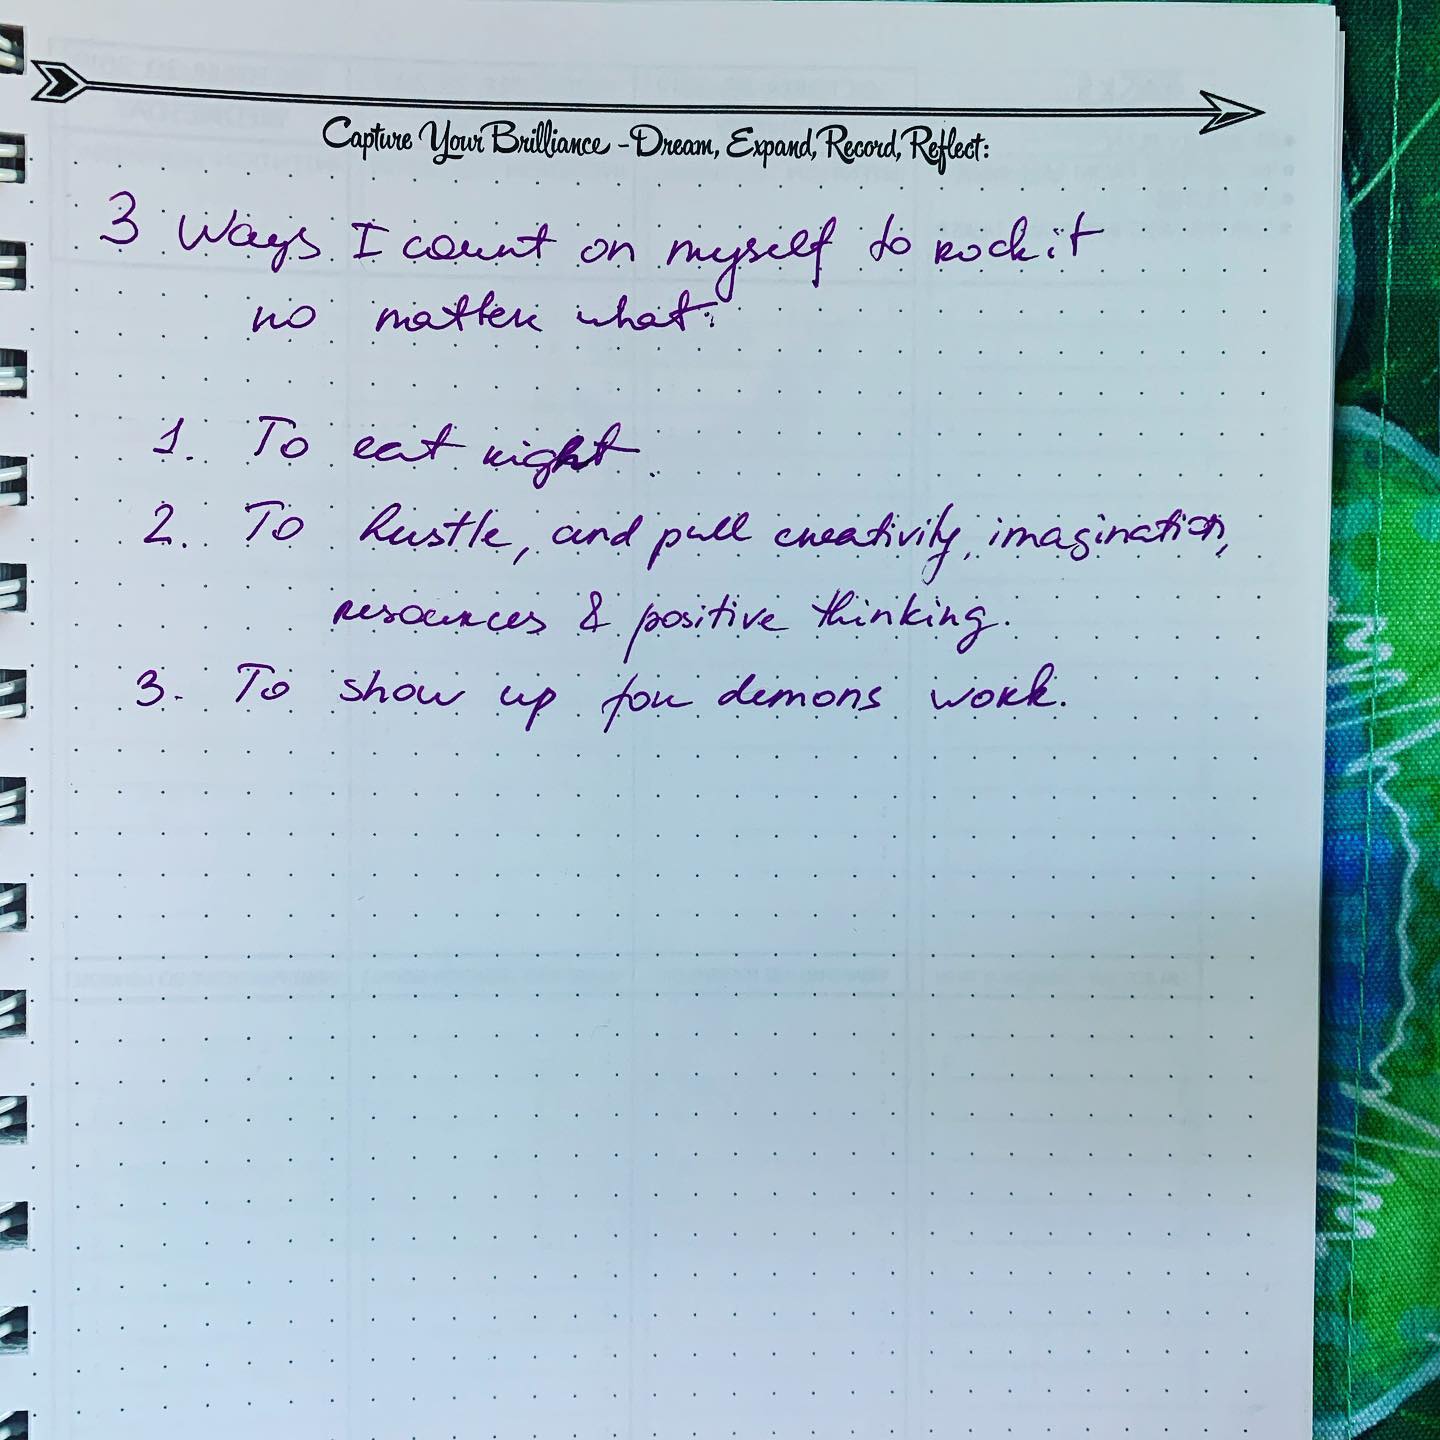 Capture Your Brilliance - Dream, Expand, Record, Reflect:
3 Ways I count on myself to rock it
no matter what:
1. To eat right.
2. To hustle, and pull creativity, imagination,
resources & positive thinking.
3. To show up for demons work.